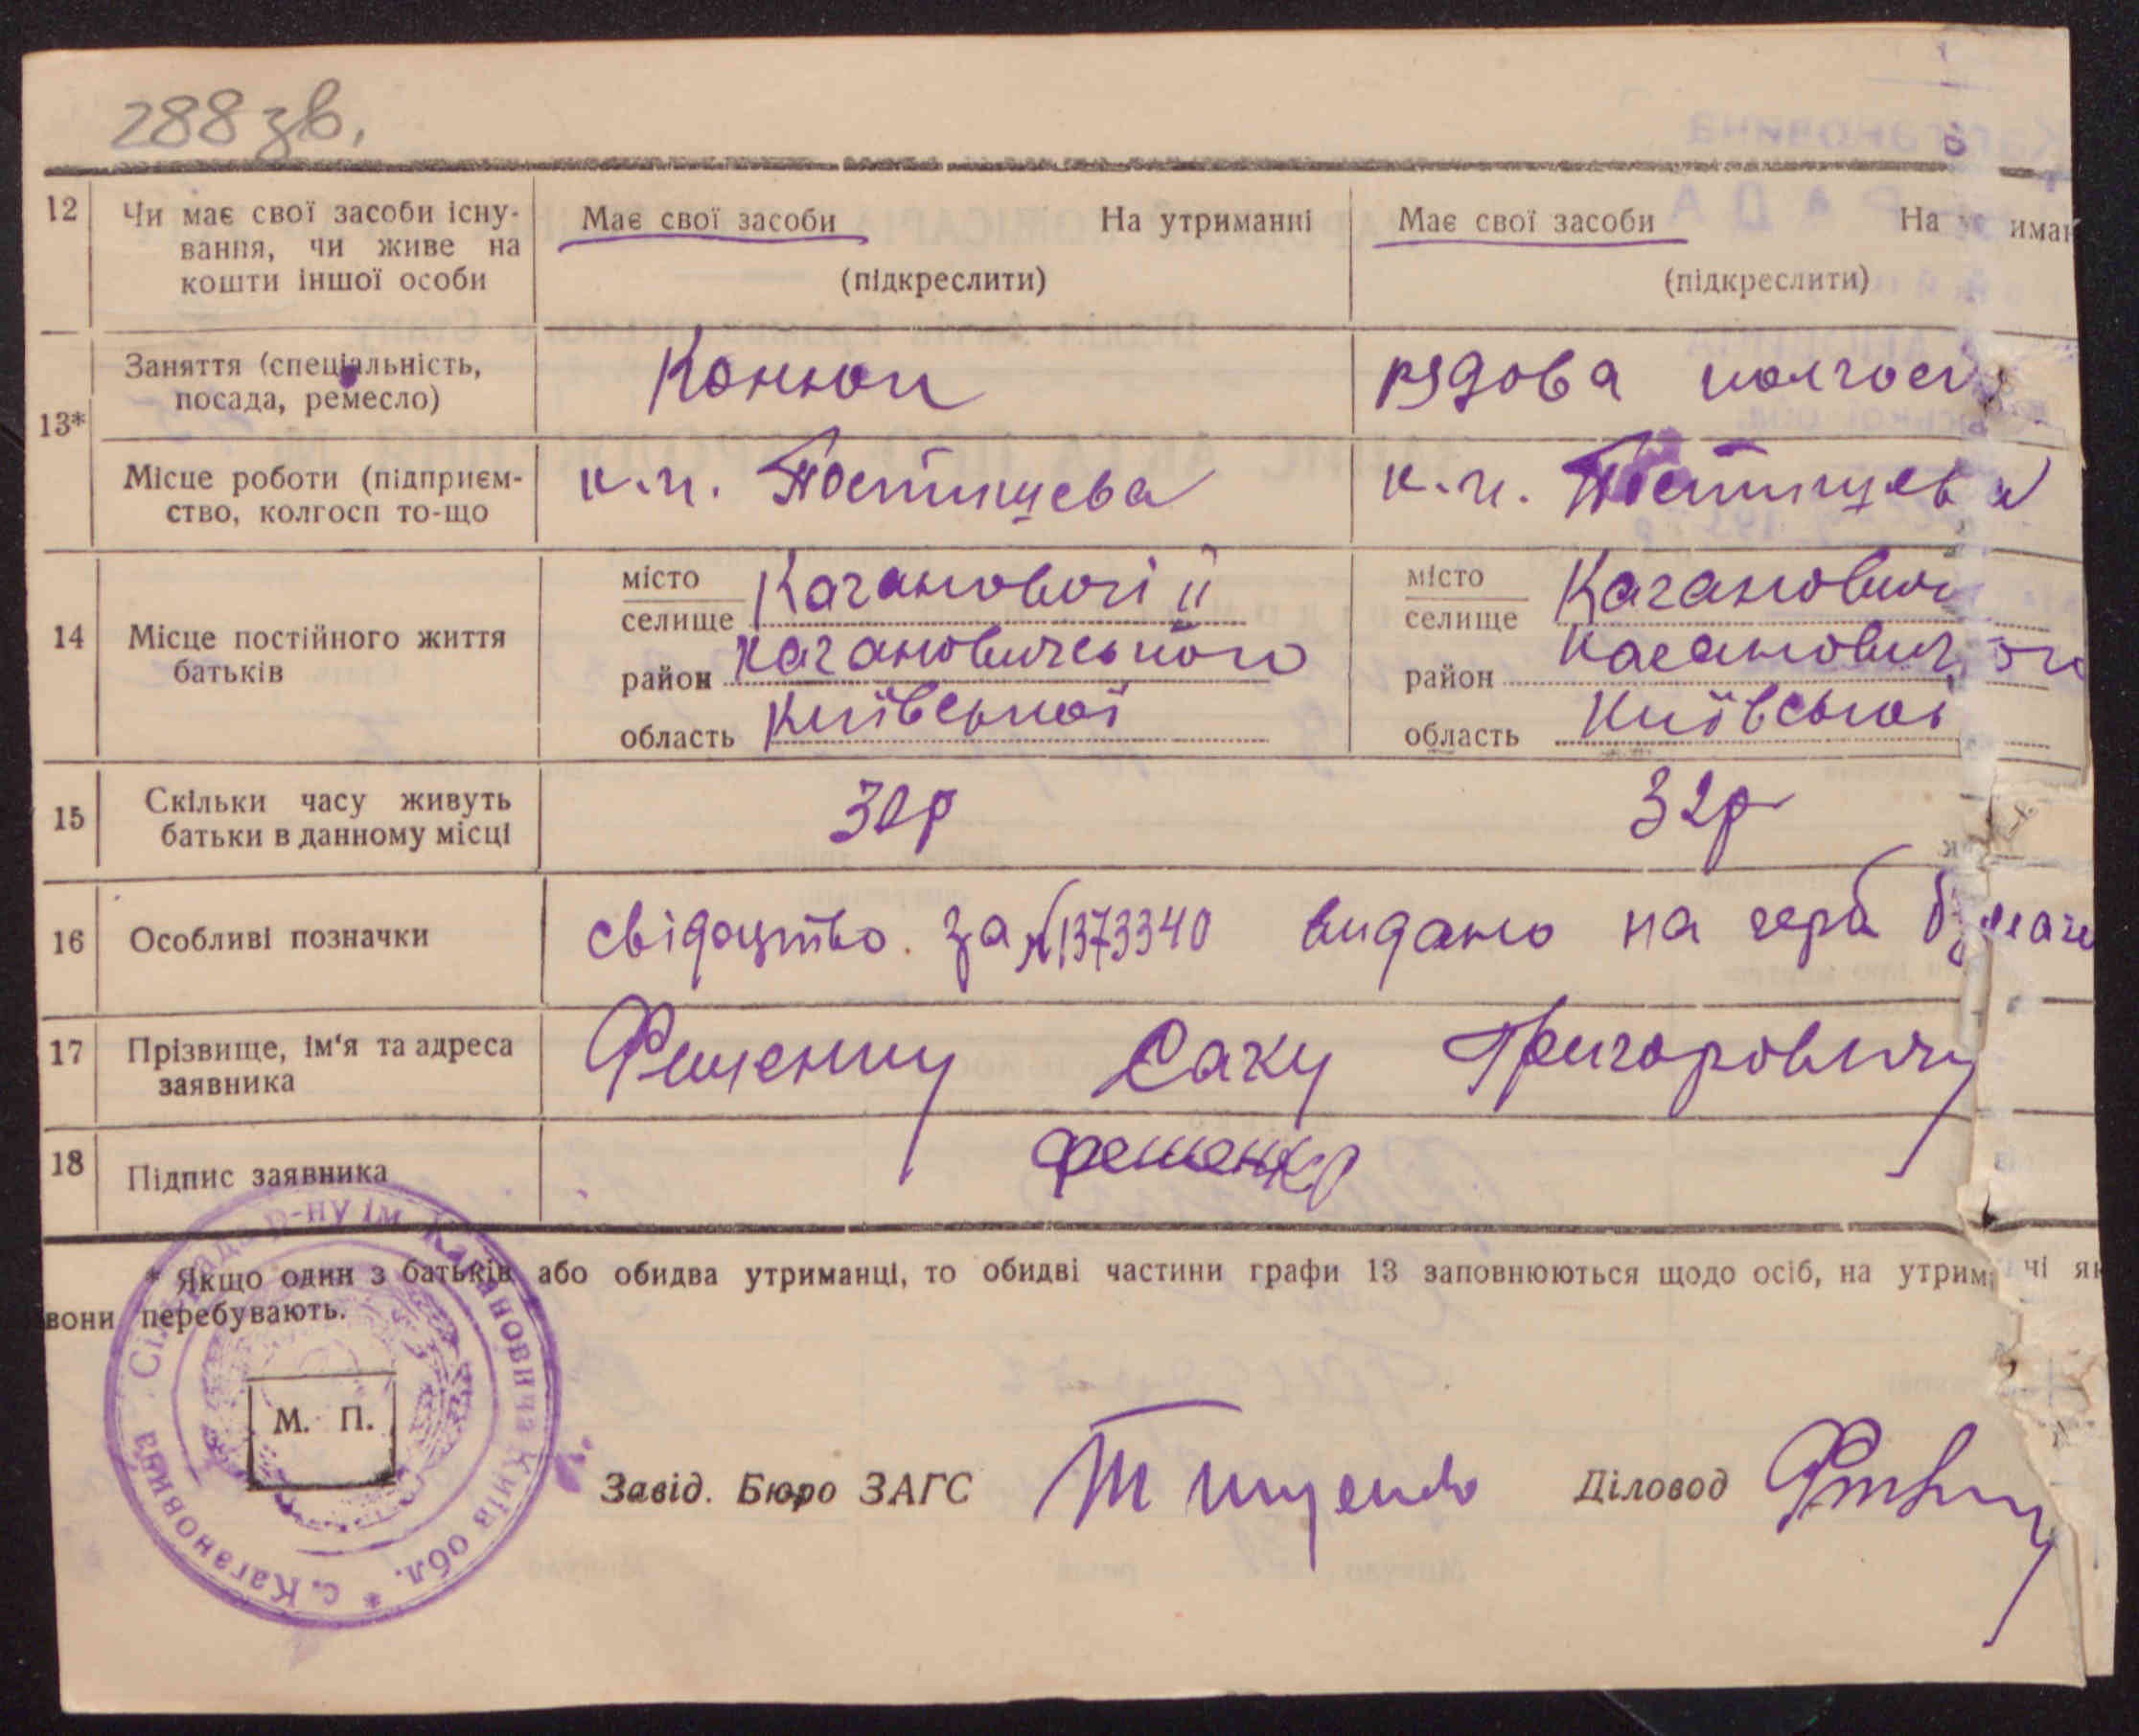 288 зв.
12 Чи має свої засоби існу- Має свої засоби На утриманні Має свої засоби На
вання, чи живе на
кошти іншої особи (підкреслити) (підкреслити)
Заняття (спеціальність, Конюх рядова колгосп
посада, ремесло)
13*
Місце роботи (підприєм- к.г. Постишева к.г. Постишева
ство, колгосп то-що
місто Кагановичі ІІ місто Кагановичі
селище селище
14 Місце постійного життя район Кагановичського район
батьків
область Київської область Київської
15 Скільки часу живуть 32р 32р
батьки в данному місці
16 Особливі позначки свідоцтво за №1373340 видано на герб
17 Прізвище, ім'я та адреса Фещенку Саку Григоровичу
заявника
18 Підпис заявника Фещенко
* Якщо один з батьків або обидва утриманці, то обидві частини графи 13 заповнюються щодо осіб, на
вони перебувають.
М. П.
Завід. Бюро ЗАГС Тищенко Діловод
рада р-ну ім. Кагановича Київ обл. * с. Кагановича